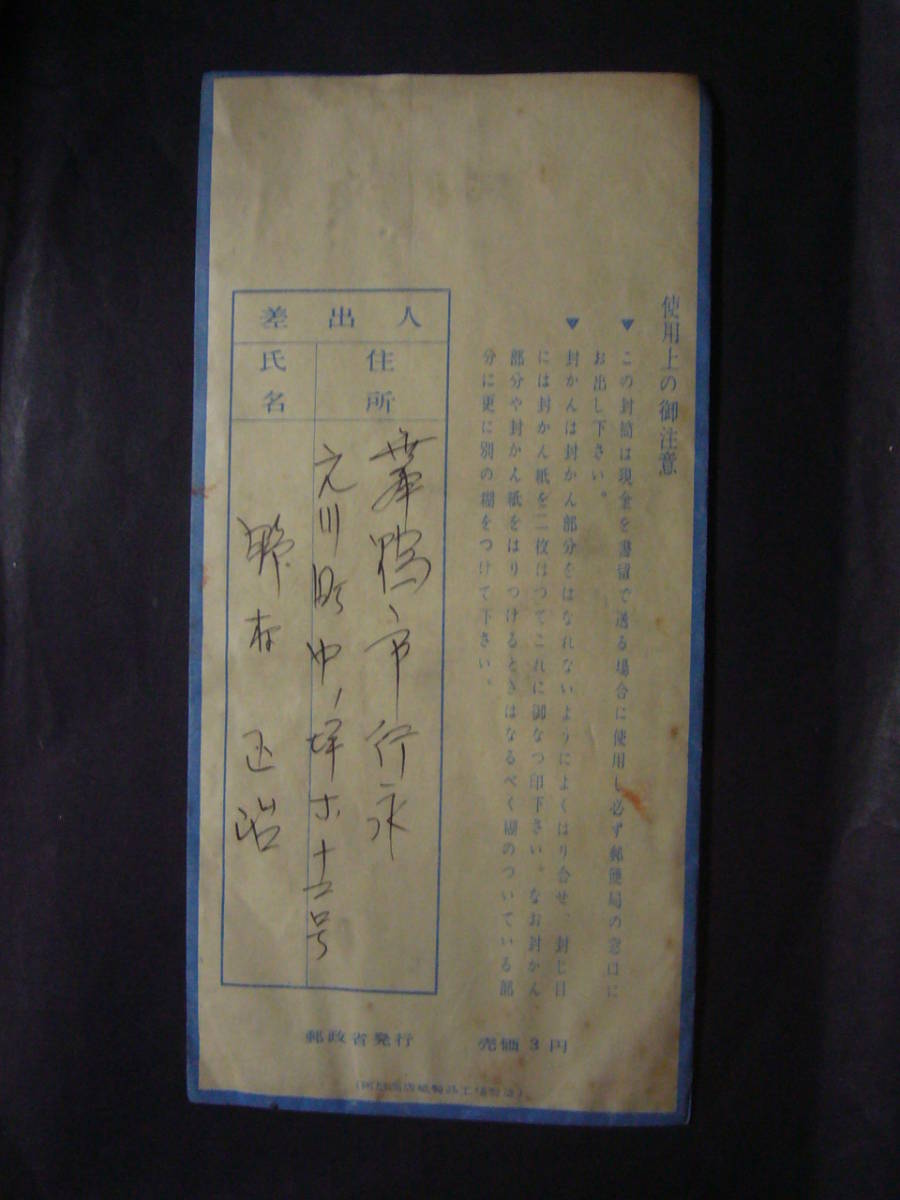 使用上の御注意
▼この封筒は現金を書留で送る場合に使用し必ず郵便局の窓口に
お出し下さい。
▼封かんは封かん部分をはなれないようによくはり合せ、封じ目
には封かん紙を二枚はつてこれに御なつ印下さい。なお封かん
部分や封かん紙をはりつけるときはなるべく糊のついている部
分に更に別の糊をつけて下さい。
差出人
住所
市行永
元川町中ノ坪ホ十二号
氏名
村 正治
郵政省発行
売価3円